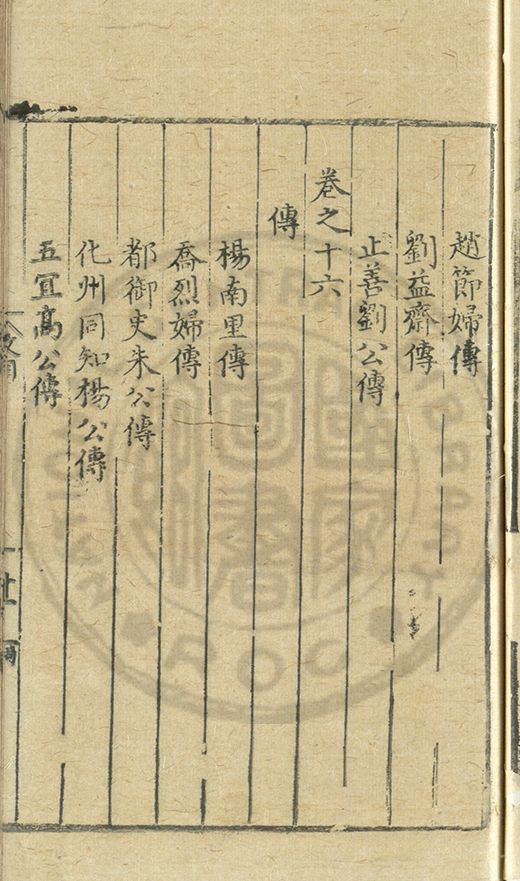 趙節婦傳
劉益齋傳
止善劉公傳
卷之十六
傳
楊南里傳
喬烈婦傳
都御史朱公傳
化州同知楊公傳
五冝高公傳